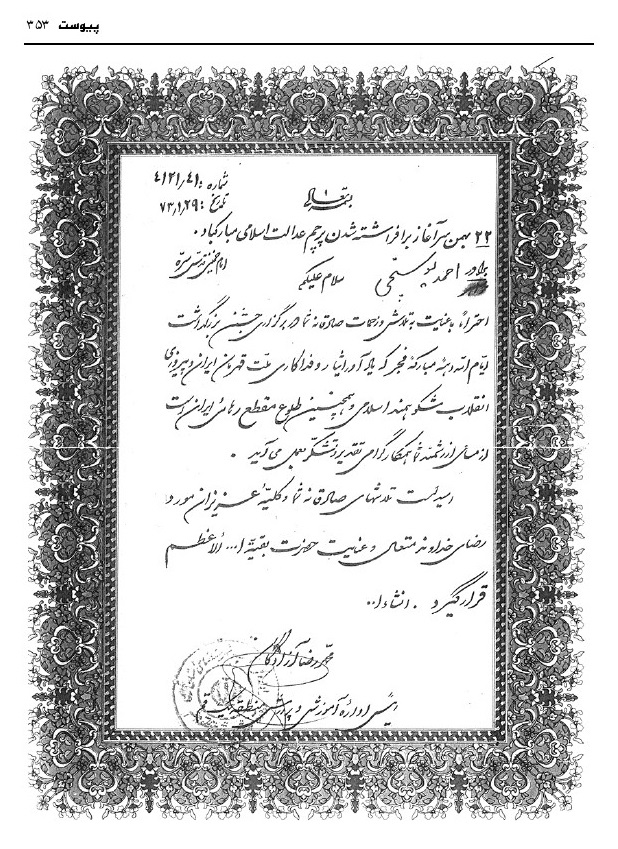 پیوست ۳۵۳
بسمه تعالی
شماره: ۴۱۲۱/۴۱
تاریخ: ۷۳/۱/۲۹
۲۲ بهمن سرآغاز برافراشته شدن پرچم عدالت اسلامی مبارکباد.
امام خمینی قدس سره
برادر احمد
سلام علیکم
احتراماً با عنایت به تلاش و زحمات صادقانه شما در برگزاری جشن بزرگداشت
ایام الله دهه مبارکه فجر که یادآور ایثار و فداکاری ملت قهرمان ایران و پیروزی
انقلاب شکوهمند اسلامی و همچنین طلوع مقطع رهائی ایران است
از مساعی ارزشمند شما همکار گرامی تقدیر و تشکر بعمل می‌آید.
امید است تلاشهای صادقانه شما و کلیه عزیزان مورد
رضای خداوند متعال و عنایت حضرت بقیة ا... الاعظم
قرار گیرد. انشاء ا...
محمدرضا آزادگان
رئیس اداره آموزش و پرورش منطقه یک قم